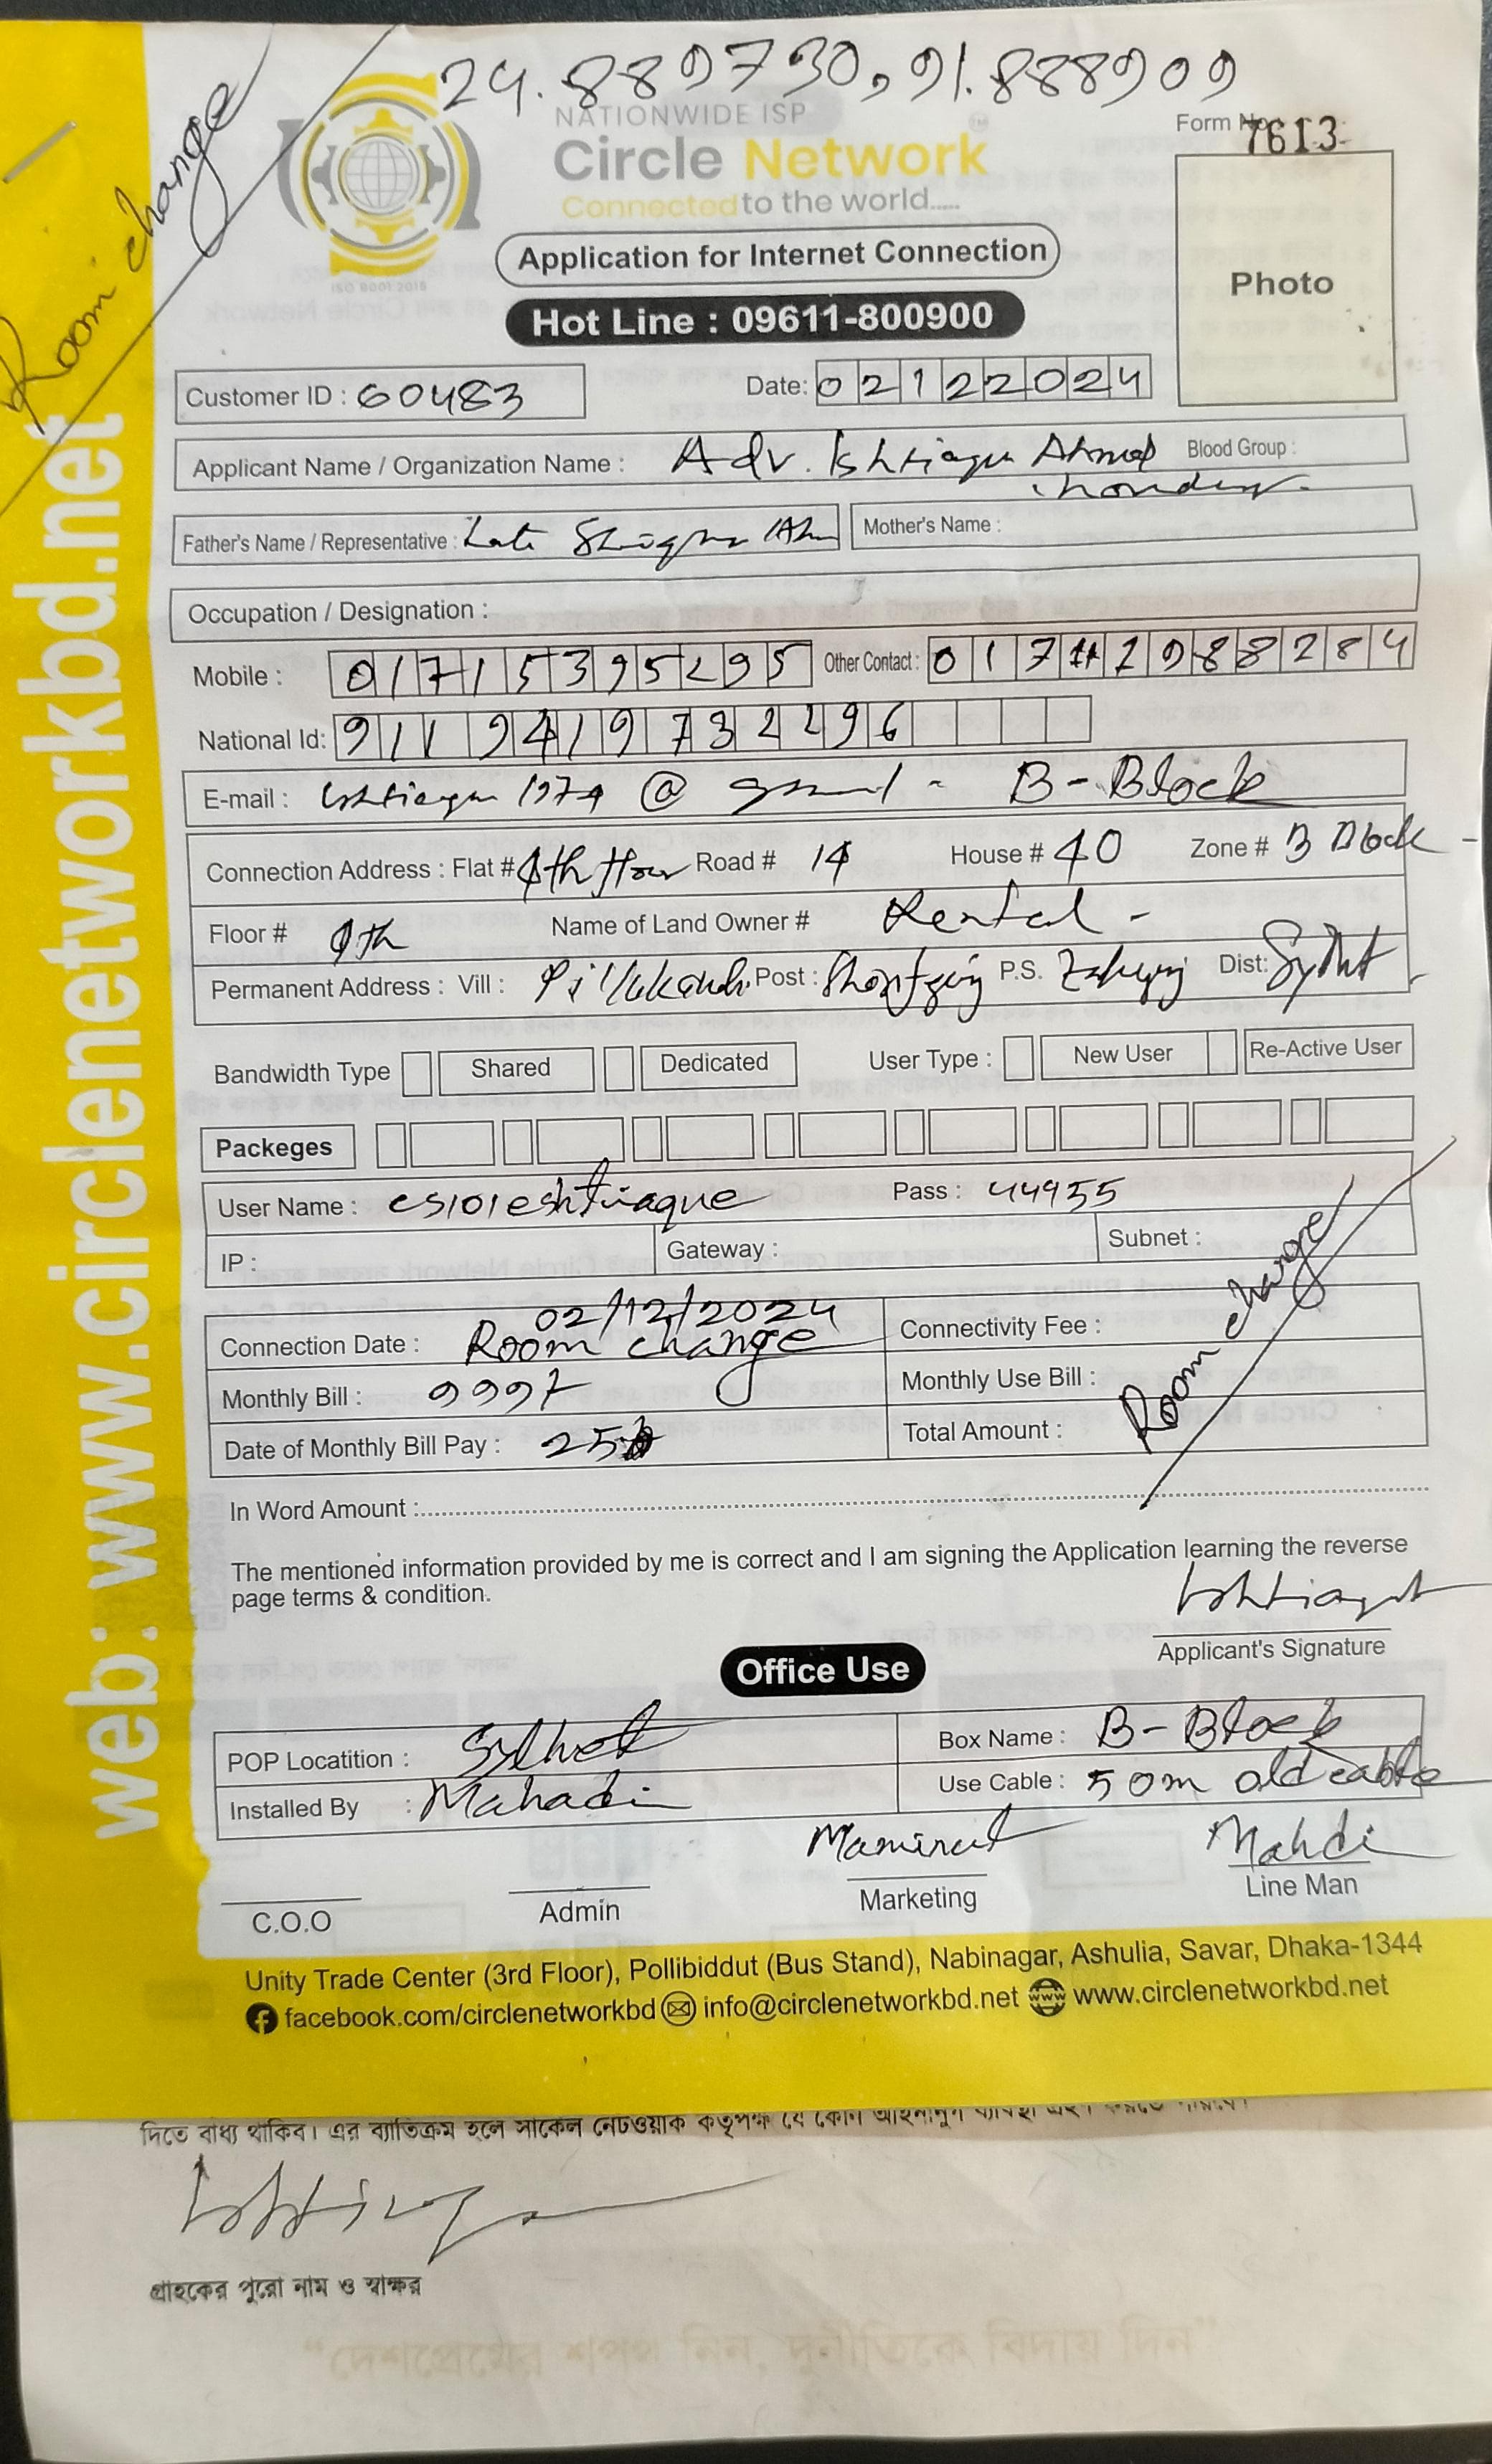 24.889730, 91.888909
Room change
NATIONWIDE ISP
Circle Network
Connected to the world.....
ISO 9001 2015
Form No. 7613
Application for Internet Connection
Photo
Hot Line : 09611-800900
Customer ID : 60483
Date: 02122024
Applicant Name / Organization Name : Adv. Ishtiaque Ahmed
Blood Group :
Father's Name / Representative : Late
Mother's Name :
Occupation / Designation :
Mobile : 01715395295 Other Contact :
National Id:
E-mail : B-Block
Connection Address : Flat # Road # 14 House # 40 Zone # B Block
Floor # Name of Land Owner # Rental -
Permanent Address : Vill : Post : P.S. Dist: Sylhet
Bandwidth Type Shared Dedicated User Type : New User Re-Active User
Packeges
User Name : cs101eshtiaque Pass : 44955
IP : Gateway : Subnet :
02/12/2024
Connection Date : Room change Connectivity Fee :
Monthly Bill : 999 Monthly Use Bill :
Date of Monthly Bill Pay : 25 Total Amount :
Room change
In Word Amount :
The mentioned information provided by me is correct and I am signing the Application learning the reverse
page terms & condition.
Ishtiaque
Applicant's Signature
Office Use
POP Locatition : Sylhet Box Name : B-Block
Installed By : Mahadi Use Cable : 50m old cable
Mahdi
C.O.O Admin Marketing Line Man
Unity Trade Center (3rd Floor), Pollibiddut (Bus Stand), Nabinagar, Ashulia, Savar, Dhaka-1344
facebook.com/circlenetworkbd info@circlenetworkbd.net www.circlenetworkbd.net
web: www.circlenetworkbd.net
দিতে বাধ্য থাকিব। এর ব্যাতিক্রম হলে সার্কেল নেটওয়ার্ক কতৃপক্ষ যে কোন আইনানুগ ব্যবস্থা গ্রহণ করতে পারবে।
গ্রাহকের পুরো নাম ও স্বাক্ষর
“দেশপ্রেমের শপথ নিন, দুর্নীতিকে বিদায় দিন”